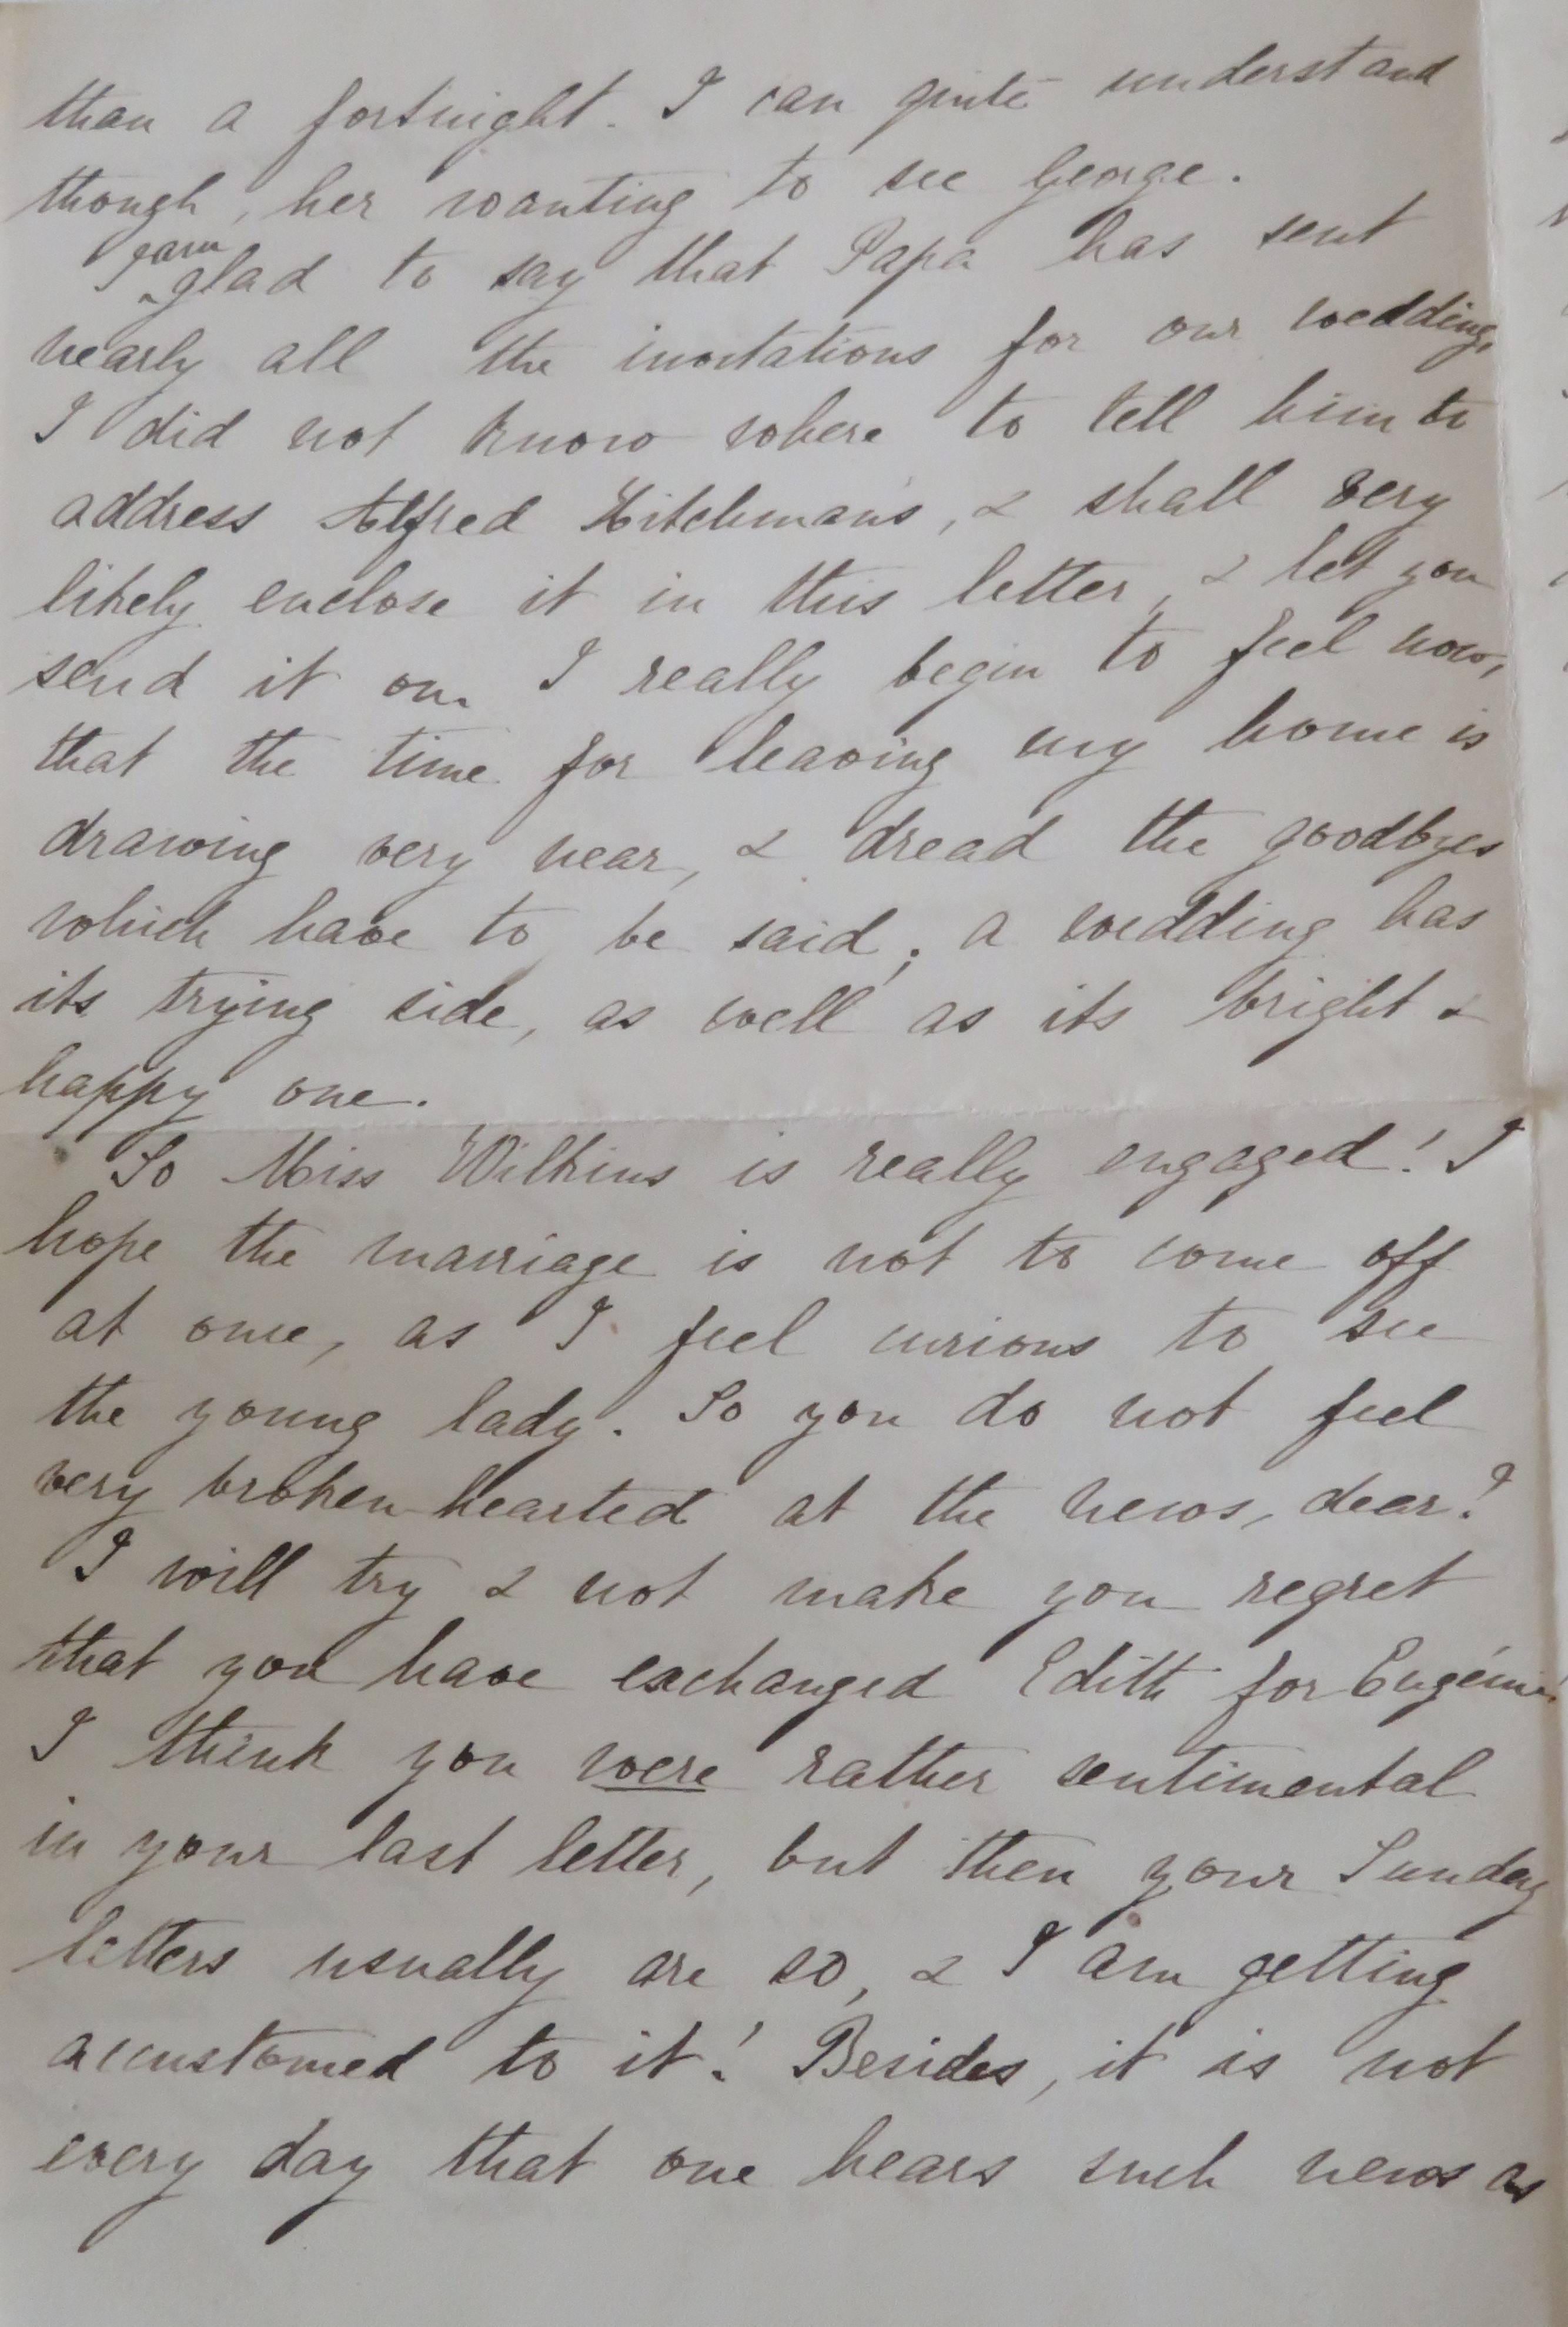 than a fortnight. I can quite understand
though, her wanting to see George.
I am glad to say that Papa has sent
nearly all the invitations for our wedding,
I did not know where to tell him to
address Alfred Hitchman's, & shall very
likely enclose it in this letter, & let you
send it on. I really begin to feel now,
that the time for leaving my home is
drawing very near, & dread the goodbyes
which have to be said; a wedding has
its trying side, as well as its bright &
happy one.
So Miss Wilkins is really engaged! I
hope the marriage is not to come off
at once, as I feel curious to see
the young lady. So you do not feel
very broken-hearted at the news, dear?
I will try & not make you regret
that you have exchanged Edith for Eugénie.
I think you were rather sentimental
in your last letter, but then your Sunday
letters usually are so, & I am getting
accustomed to it! Besides, it is not
every day that one hears such news as